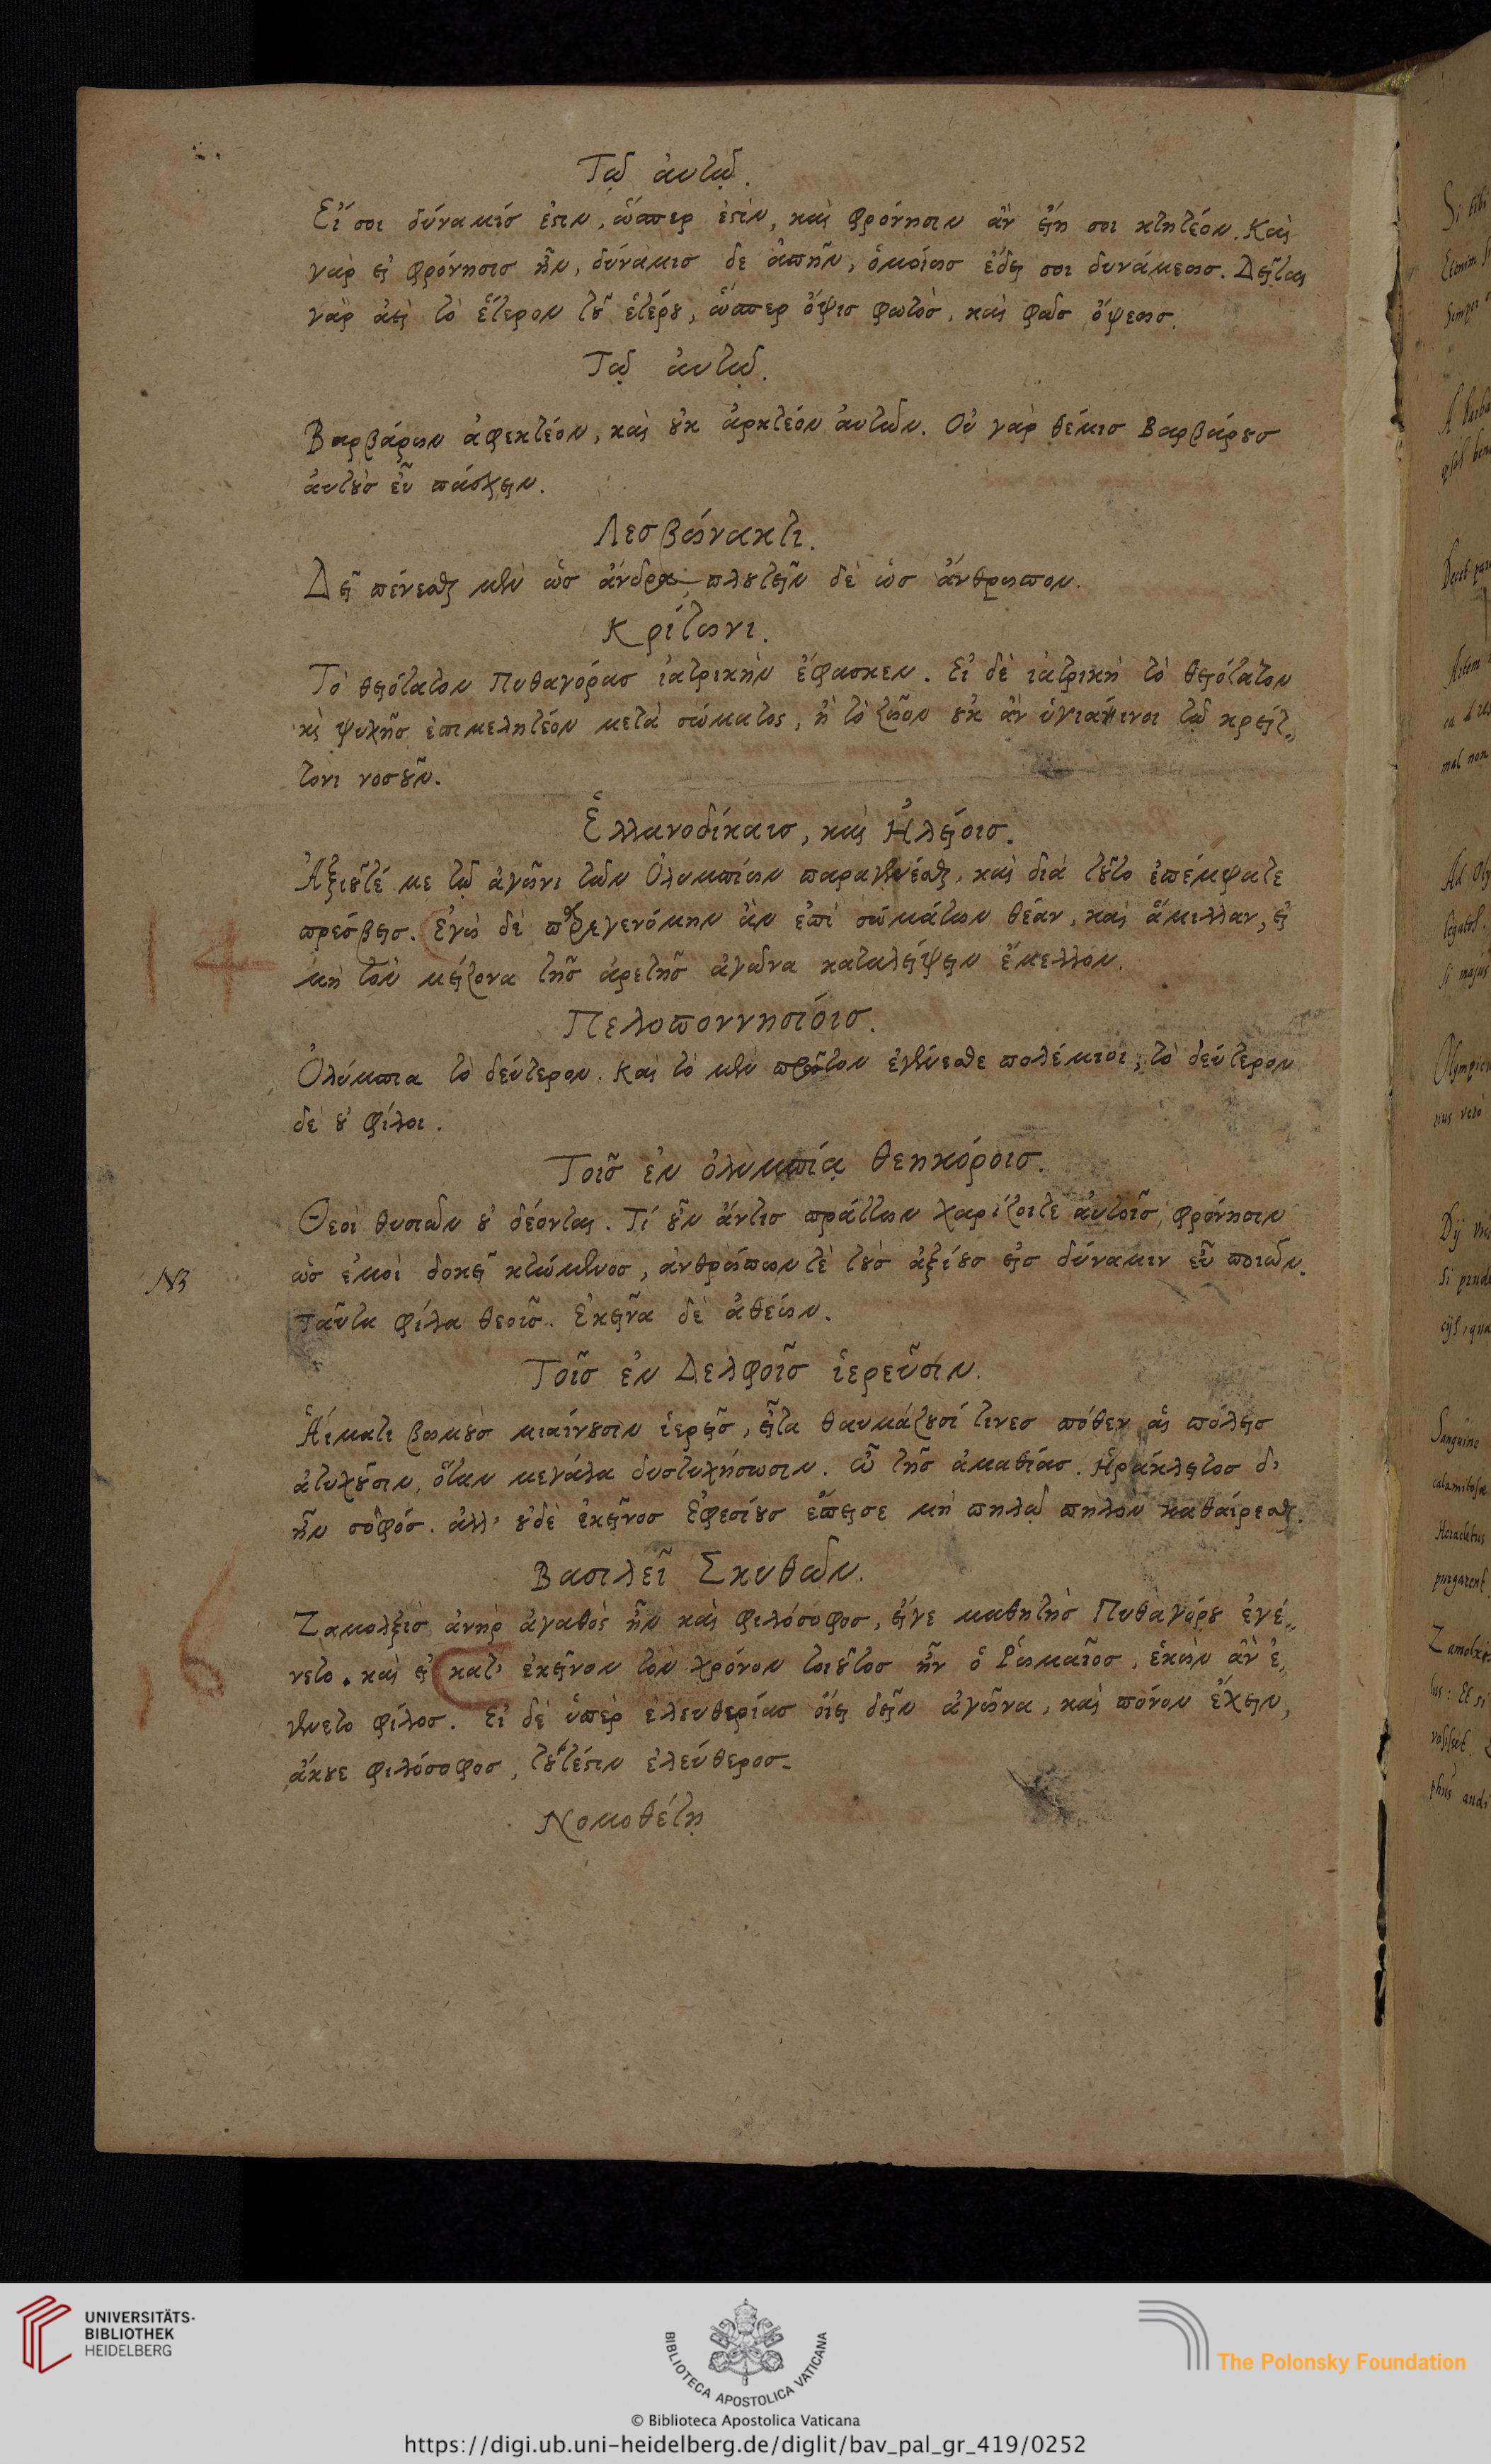 Τῷ ἀυτῷ.
Εἴ σοι δύναμίσ ἐστιν, ὥσπερ ἐστὶν, καὶ φρόνησιν ἂν εἴη σοι κτητέον. Καὶ
γὰρ εἰ φρόνησισ ἦν, δύναμισ δε ἀπῆν, ὁμοίωσ ἐδει σοι δυνάμεωσ. Δεῖται
γὰρ ἀεὶ τὸ ἕτερον τοῦ ἑτέρου, ὥσπερ ὄψισ φωτὸσ, καὶ φῶσ ὄψεωσ.
Τῷ ἀυτῷ.
Βαρβάρων ἀφεκτέον, καὶ οὐκ ἀρκτέον ἀυτῶν. Οὐ γὰρ θέμισ βαρβάρουσ
ἀυτοὺσ εὖ πάσχειν.
Λεσβώνακτι.
Δεῖ πένεσθαι μὲν ὡσ ἄνδρα, πλουτεῖν δὲ ὡσ ἄνθρωπον.
Κρίτωνι.
Τὸ θειότατον Πυθαγόρασ ἰατρικὴν ἔφασκεν. Εἰ δὲ ἰατρικὴ τὸ θειότατον
κὶ ψυχῆσ ἐπιμελητέον μετὰ σώματος, ἢ τὸ ζῶον οὐκ ἂν ὑγιαίνοι τῷ κρείτ„
τονι νοσοῦν.
Ἑλλανοδίκαισ, καὶ Ἠλείοισ.
Ἀξιοῦτέ με τῷ ἀγῶνι τῶν Ὀλυμπίων παραγενέσθαι, καὶ διὰ τοῦτο ἐπέμψατε
πρέσβεισ. Ἐγὼ δὲ παρεγενόμην ἂν ἐπὶ σωμάτων θέαν, καὶ ἅμιλλαν, εἰ
14
μὴ τὸν μείζονα τῆσ ἀρετῆσ ἀγῶνα καταλείψειν ἔμελλον.
Πελοποννησίοισ.
Ὀλύμπια τὸ δεύτερον. Καὶ τὸ μὲν πρῶτον ἐγένεσθε πολέμιοι, τὸ δεύτερον
δὲ οὐ φίλοι.
Τοῖσ ἐν ὀλυμπίᾳ θεηκόροισ.
Θεοὶ θυσιῶν οὐ δέονται. Τί οὖν ἄντισ πράττων χαρίζοιτε ἀυτοῖσ, φρόνησιν
ὡσ ἐμοὶ δοκεῖ κτώμενος, ἀνθρώπων τὲ τοὺσ ἀξίουσ εἰσ δύναμιν εὖ ποιῶν.
NB
ταῦτα φίλα θεοῖσ. Ἐκεῖνα δὲ ἀθέων.
Τοῖσ ἐν Δελφοῖσ ἱερεῦσιν.
Αἵματι βωμοὺσ μιαίνουσιν ἱερεῖσ, εἶτα θαυμάζουσί τινεσ πόθεν ἁι πόλεισ
ἀτυχοῦσιν, ὅταν μεγάλα δυστυχήσωσιν. ὦ τῆσ ἀμαθίασ. Ἡράκλειτος δὲ
ἦν σοφόσ. ἀλλ' οὐδὲ ἐκεῖνοσ Ἐφεσίουσ ἔπεισε μὴ πηλῷ πηλὸν καθαίρεσθαι.
Βασιλεῖ Σκυθῶν.
Ζάμολξισ ἀνὴρ ἀγαθὸς ἦν καὶ φιλόσοφοσ, εἴγε μαθητὴσ Πυθαγόρου ἐγέ„
νετο. καὶ εἰ κατ' ἐκεῖνον τὸν χρόνον τοιοῦτοσ ἦν ὁ Ῥωμαῖοσ, ἑκὼν ἂν ἐ„
16
γένετο φίλοσ. Εἰ δὲ ὑπὲρ ἐλευθερίασ οἴει δεῖν ἀγῶνα, καὶ πόνον ἔχειν,
ἄκουε φιλόσοφοσ, τουτέστιν ἐλεύθεροσ.
Νομοθέτῃ
Si tibi
A Barba
Decet pau
Ad Oly
legatos.
si majus
Olympic
Dij
Sanguine
Heraclitus
purgarent
UNIVERSITÄTS-
BIBLIOTHEK
HEIDELBERG
BIBLIOTECA APOSTOLICA VATICANA
The Polonsky Foundation
© Biblioteca Apostolica Vaticana
https://digi.ub.uni-heidelberg.de/diglit/bav_pal_gr_419/0252